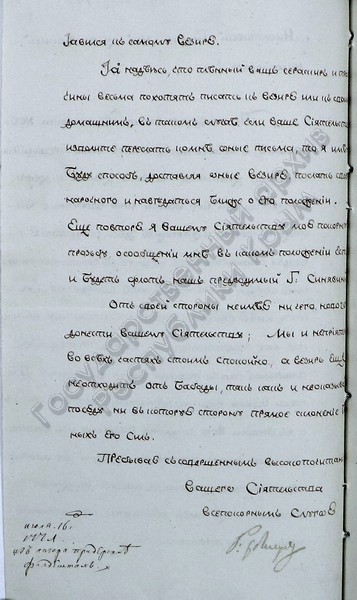 явился къ самому везирю.
Я надѣюсь, что плѣнный вашъ сераскиръ и п
сины весьма похотятъ писать къ везирю или къ с
домашнимъ, въ такомъ случаѣ если Ваше Сіятельс
изволите переслать ко мнѣ оные письма, то я им
буду способъ, доставляя оные везирю, послать
нарочного и навѣдаться ближе о его положеніи.
Еще повторя я Вашему Сіятельству мою покор
прозьбу о сообщеніи мнѣ въ какомъ положеніи ест
и будетъ флотъ нашъ предводимый Г. Синявин
Отъ своей стороны неимѣю ничего, надо
донести Вашему Сіятельству; Мы и непріят
во всѣхъ частяхъ стоимъ спокойно, а везирь ещ
неотходитъ отъ Бабады, такъ какъ и неоказыва
посему ни въ которую сторону прямое склоненіе
ныхъ его силъ.
Пребывая съ совершеннымъ высокопочитан
Вашего Сіятельства
всепокорнымъ слугою
іюля 16.
1771.
изъ лагеря при деревнѣ
Государственный архив
Республики Крым